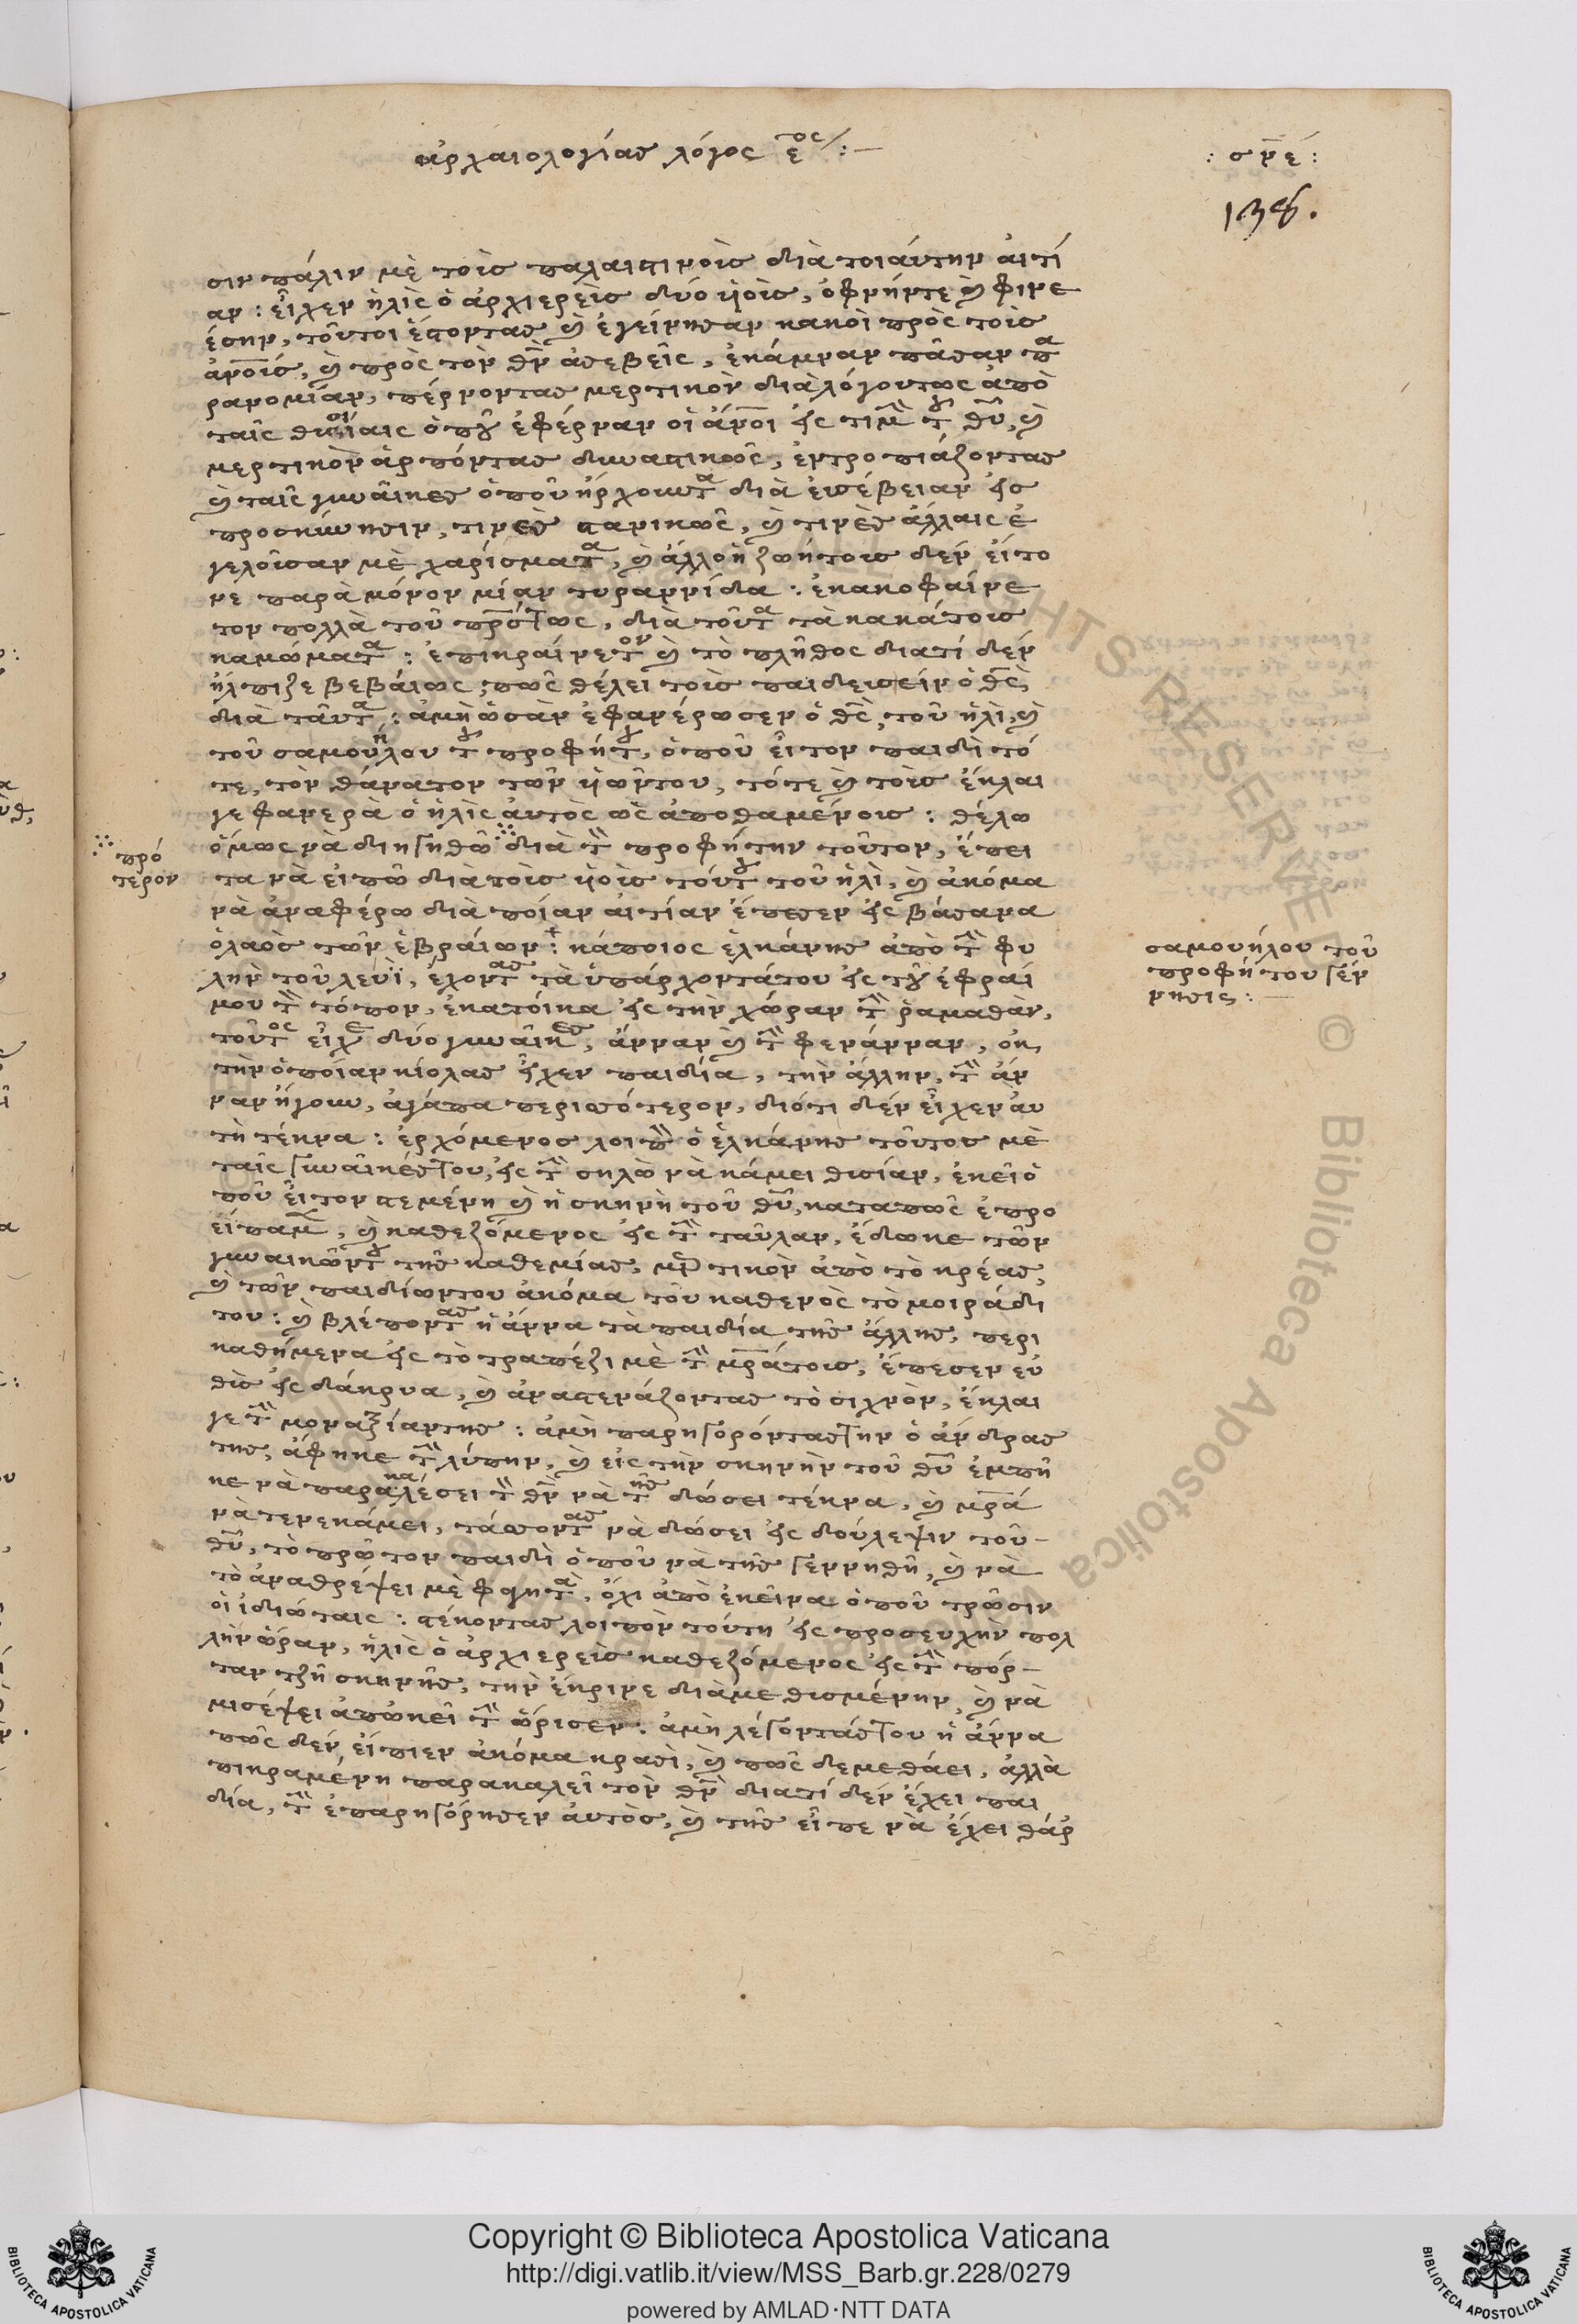 ἀρχαιολογίας λόγος ε^ος :—
: σκέ :
138.
σιν πάλιν μὲ τοὺς παλαιστινοὺς διὰ τοιαύτην αἰτί
αν : εἶχεν ἠλὶς ὁ ἀρχιερεὺς δύο ὑιοὺς, ὀφνήν τε κ φινε
έσην, τοῦτοι ἔστοντας κ ἐγείνησαν κακοὶ πρὸς τοὺς
ἀνοῦς, κ πρὸς τὸν θν ἀσεβεῖς, ἐκάμναν πᾶσαν πα
ρανομίαν, πέρνοντας μερτικὸν διαλόγουτως ἀπὸ
ταῖς θυσίαις ὁποῦ ἐφέρναν οἱ ἄνοι εἰς τιμὴ τοῦ θυ, κ
μερτικὸν ἁρπόντας δυναστικῶς, ἐντροπιάζοντας
κ ταῖς γυναῖκες ὁποῦ ἤρχουντα διὰ εὐσέβειαν εἰς
προσκύνησιν, τινὲς στανικῶς, κ τινὲς ἄλλαις ἐ
γελοῦσαν μὲ χαρίσματα, κ ἄλλο ἡ ζωήτους δὲν εἶτο
νε παρὰ μόνον μίαν τυραννίδα : ἐκακοφαίνε
τον πολλὰ τοῦ πρστως, διὰ τοῦτα τὰ κακάτους
καμώματα : ἐπικραίνετον κ τὸ πλῆθος διατί δὲν
ἤλπιζε βεβαίως, πῶς θέλει τοὺς παιδευσεῖν ὁ θς,
διὰ ταῦτα : ἀμὴ ὡσὰν ἐφανέρωσεν ὁ θς, τοῦ ἠλὶ, κ
τοῦ σαμουήλου τοῦ προφήτου, ὁποῦ εἶτον παιδὶ τό
τε, τὸν θάνατον τῶν ὑιῶντου, τότε κ τοὺς ἔκλαι
γε φανερὰ ὁ ἠλὶς ἀυτὸς ὡς ἀποθαμένους : θέλω
ὅμως νὰ διηγηθῶ διὰ τὸν προφήτην τοῦτον, ἔπει
πρό
τερον
τα νὰ εἰπῶ διὰ τοὺς ὑιοὺς τούτου τοῦ ἠλὶ, κ ἀκόμα
νὰ ἀναφέρω διὰ ποίαν αἰτίαν ἔπεσεν εἰς βάσανα
ὁλαὸς τῶν ἑβραίων : κάποιος ἑλκάνης ἀπὸ τὴν φυ
λὴν τοῦ λευῒ, ἔχοντας τὰ ὑπάρχοντάτου εἰς τοῦ ἐφραΐ
μου τὸν τόπον, ἐκατόικα εἰς τὴν χώραν τὴν ῥαμαθὰν,
σαμουήλου τοῦ
προφήτου γέν
νησις : —
τοῦτος εἶχε δύο γυναῖκες, ἄνναν κ τὴν φενάνναν, ἐκ
τὴν ὁποίαν κιόλας εἶχεν παιδία, τὴν ἄλλην, τὴν ἄν
ναν ἤγουν, ἀγάπα περισσότερον, διότι δὲν εἶχεν ἀυ
τὴ τέκνα : ἐρχόμενος λοιπὸν ὁ ἑλκάνης τοῦτος μὲ
ταῖς γυναῖκέςτου, εἰς τὴν σηλὼ νὰ κάμει θυσίαν, ἐκεῖ ὁ
ποῦ εἶτον στεμένη κ ἡ σκηνὴ τοῦ θυ, καταπῶς ἐπρο
εἴπαμεν, κ καθεζόμενος εἰς τὴν ταῦλαν, ἔδωκε τῶν
γυναικῶντου τῆς καθεμίας, μερτικὸν ἀπὸ τὸ κρέας,
κ τῶν παιδίωντου ἀκόμα τοῦ καθενὸς τὸ μοιράδι
του : κ βλέποντας ἡ ἄννα τὰ παιδία τῆς ἄλλης, περι
καθήμενα εἰς τὸ τραπέζι μὲ τὴν μρατους, ἔπεσεν εὐ
θὺς εἰς δάκρυα, κ ἀναστενάζοντας τὸ συχνὸν, ἔκλαι
γε τὴν μοναξίαντης : ἀμὴ παρηγορόντας την ὁ ἄνδρας
της, ἄφηκε τὴν λύπην, κ εἰς τὴν σκηνὴν τοῦ θυ ἐμπῆ
κε νὰ παρακαλέσει τὸν θν νὰ τῆς δώσει τέκνα, κ μρα
νὰ τενεκάμει, τάσσοντας νὰ δώσει εἰς δούλεψιν τοῦ-
θυ, τὸ πρῶτον παιδὶ ὁποῦ νὰ τῆς γεννηθῆ, κ νὰ
τὸ ἀναθρέψει μὲ φαγητὰ, ὄχι ἀπὸ ἐκεῖνα ὁποῦ τρῶσιν
οἱ ἰδιώταις : στέκοντας λοιπὸν τούτη εἰς προσευχὴν πολ
λὴν ὥραν, ἠλὶς ὁ ἀρχιερεὺς καθεζόμενος εἰς τὴν πόρ-
ταν τζῆ σκηνῆς, τὴν ἔκρινε διὰ μεθυσμένην, κ νὰ
μισέψει ἀπὠκεῖ τὴν ὥρισεν : ἀμὴ λέγοντάςτου ἡ ἄννα
πῶς δὲν εἴπιεν ἀκόμα κρασὶ, κ πῶς δεμεθάει, ἀλλὰ
πικραμένη παρακαλεῖ τὸν θν διατί δὲν ἔχει παι
δία, τὴν ἐπαρηγόρησεν ἀυτὸς, κ τῆς εἶπε νὰ ἔχει θάρ
Copyright © Biblioteca Apostolica Vaticana
http://digi.vatlib.it/view/MSS_Barb.gr.228/0279
powered by AMLAD·NTT DATA